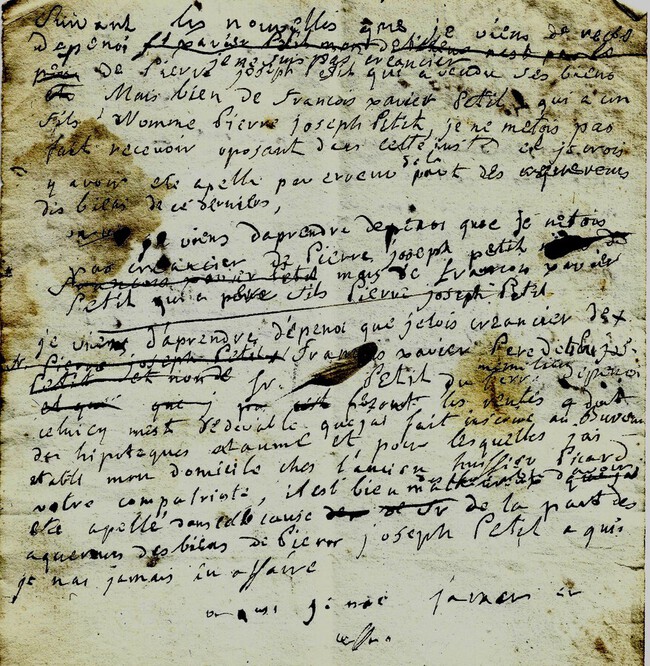 Suivant les nouvelles que je viens de recev
depenoi et xavier Petit mon debiteur n'est pas le
je ne suis pas creancier
pere de Pierre joseph Petit qui a vendu ses biens
Mais bien de francois xavier Petit qui a un
fils Nommé Pierre joseph Petit, je ne metois pas
fait recevoir oposant dans cette et je crois
y avoir eté apellé par erreur de la part des aquereurs
dis biens de ce dernier,
je viens daprendre depenoi que je netois
pas creancier de Pierre joseph petit
francois xavier Petit mais de francois xavier
Petit qui a pour fils Pierre joseph Petit
je viens daprendre depenoi que jetois creancier de
Sr. Pierre joseph Petit francois xavier Pere de
Petit et non de Sr. Petit du
et qui que j les rentes q doit
celuicy mest dedevalle que jai fait inscrire au bureau
des hipoteques et pour lesquelles jai
etabli mon domicile ches l'ancien huissier Picard
votre compatriote, il est bien d'avoir
eté apellé dans cette cause de Sr de la part des
aquereurs des biens de Pierre joseph Petit a qui
je nai jamais eu affaire
a qui je nai jamais eu